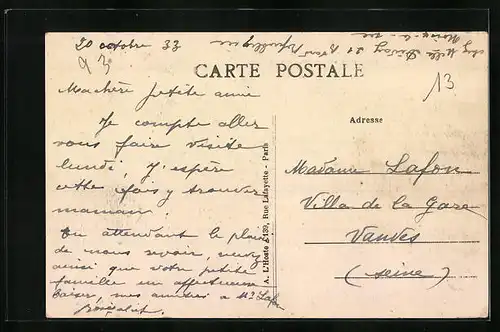 20 octobre 33
93
chez Mlle
21 Bvard République
Noisy-le-Sec
CARTE POSTALE
13
Ma chère petite amie
Je compte aller
vous faire visite
lundi, J'espère
cette fois y trouver
maman.
En attendant le plaisir
de vous revoir, recevez
ainsi que votre petite
famille un affectueux
baiser, mes amitiés à Mr Lafon
A. L'Hoste 139, Rue Lafayette - Paris
Adresse
Madame Lafon
Villa de la Gare
Vanves
(Seine)